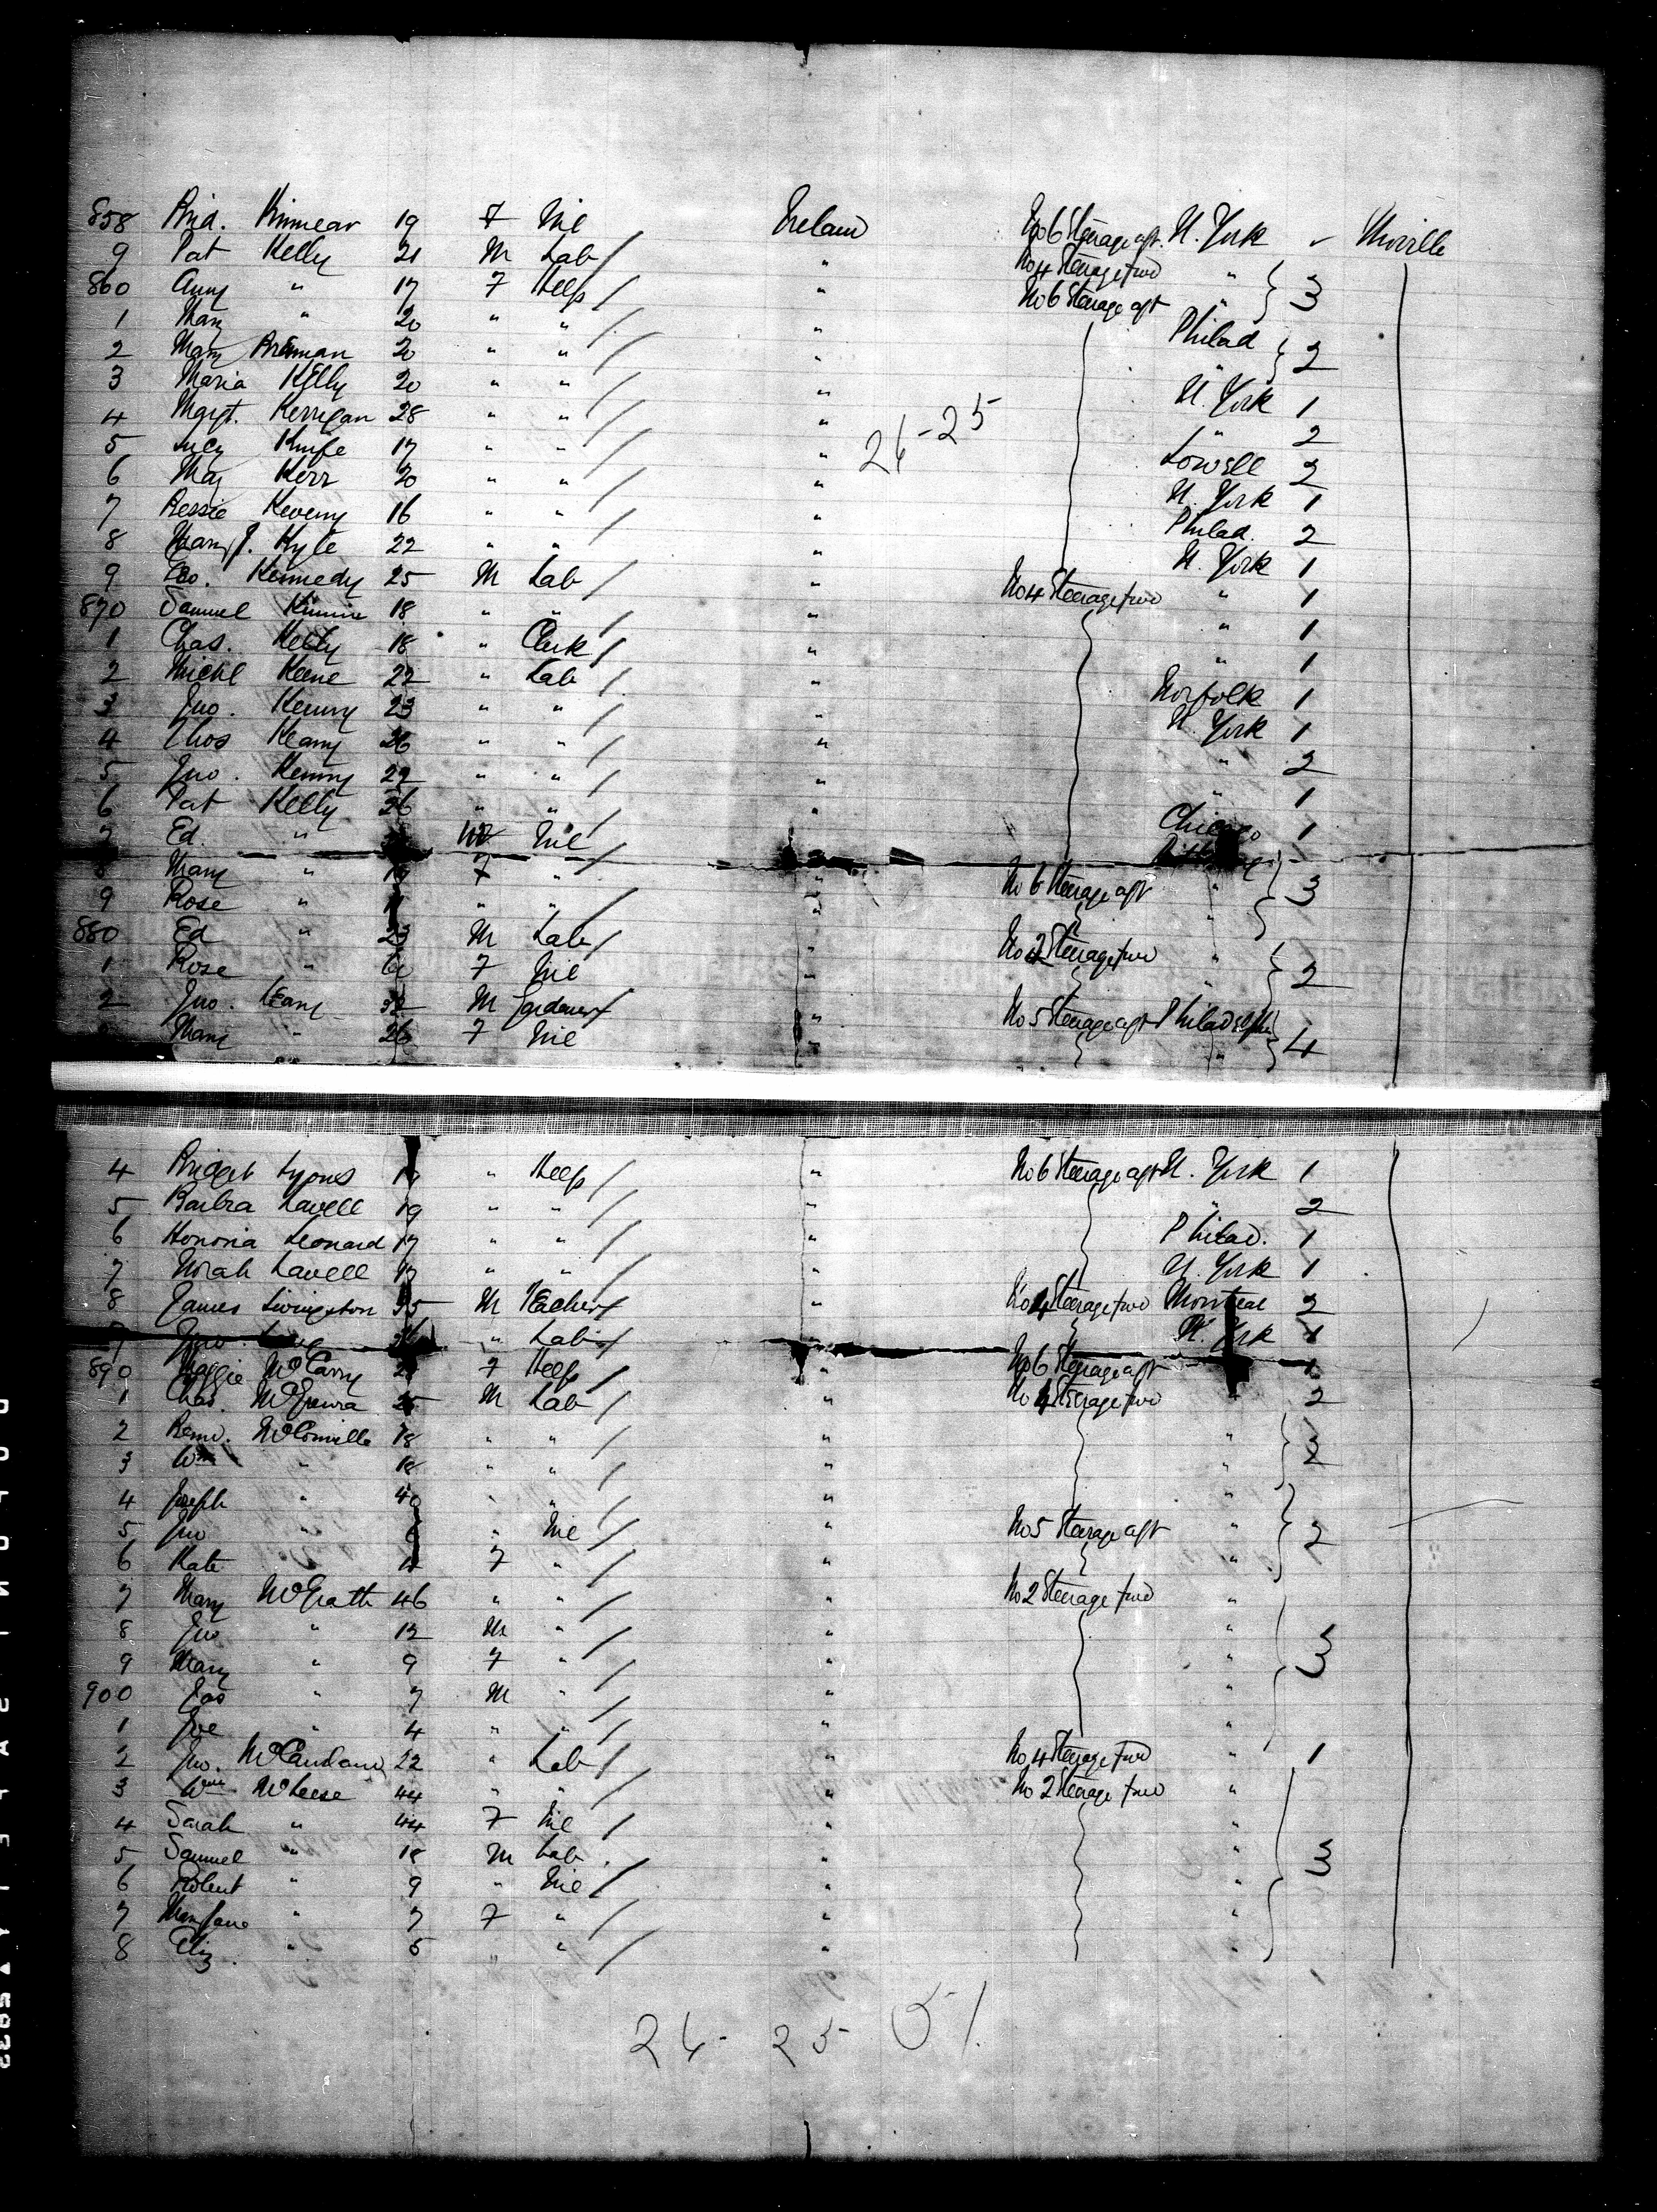 858 Brid. Kinnear 19 F Nil Ireland No 6 Steerage aft. N. York " Moville
9 Pat Kelly 21 M Lab " No 4 Steerage fwd "
860 Anny " 17 F Help " No 6 Steerage aft " 3
1 Mary " 20 " " " Philad
2 Mary Brennan 20 " " " " 2
3 Maria Kelly 20 " " " N. York 1
4 Margt. Kerrigan 28 " " " " 2
5 Lucy Knife 17 " " " Lowell 2
6 May Kerr 20 " " " N. York 1
7 Bessie Keveny 16 " " " Philad. 2
8 Mary J. Kyle 22 " " " N. York 1
9 Geo. Kennedy 25 M Lab " No 4 Steerage fwd " 1
870 Samuel 18 " " " " 1
1 Chas. Kelly 18 " Clerk " " 1
2 Michl Keene 22 " Lab " Norfolk 1
3 Jno. Kenny 23 " " " N. York 1
4 Thos Keany 26 " " " " 2
5 Jno. Kenny 22 " " " " 1
6 Pat Kelly 26 " " " Chicago 1
7 Ed. " M Nil
8 Mary " F " " No 6 Steerage aft " 3
9 Rose " " " " "
880 Ed " 23 M Lab " Steerage fwd "
1 Rose " F Nil " " 2
2 Jno. Leany 32 M Gardener " No 5 Steerage aft Philadelphia
Mary " 26 F Nil " " 4
26-25
4 Bridget Lyons " Help " No 6 Steerage aft N. York 1
5 Barbra Lavell 19 " " " " 2
6 Honoria Leonard 17 " " " Philad. 1
7 Norah Lavell 17 " " " N. York 1
8 James Livingston 35 M Teacher " No 4 Steerage fwd Montreal 2
9 Jno. " Lab N. York 1
890 Maggie McCarry F Help " No 6 Steerage aft 1
1 Chas. 25 M Lab " No 4 Steerage fwd " 2
2 Bernd. McConville 18 " " " "
3 Wm " 18 " " " " 2
4 Joseph " 40 " " " "
5 Jno " " Nil " No 5 Steerage aft " 2
6 Kate " F " " "
7 Mary McGrath 46 " " " No 2 Steerage fwd "
8 Jno " 12 M " " "
9 Mary " 9 F " " " 3
900 Jas " 7 M " " "
1 Joe " 4 " " " "
2 Jno. 22 " Lab " No 4 Steerage fwd " 1
3 Wm McLeese 44 " " " No 2 Steerage fwd "
4 Sarah " 44 F Nil " "
5 Samuel " 18 M Lab. " " 3
6 Robert " 9 " Nil " "
7 Mary Jane " 7 F " " "
8 Eliz. " 5 " " " "
26-25